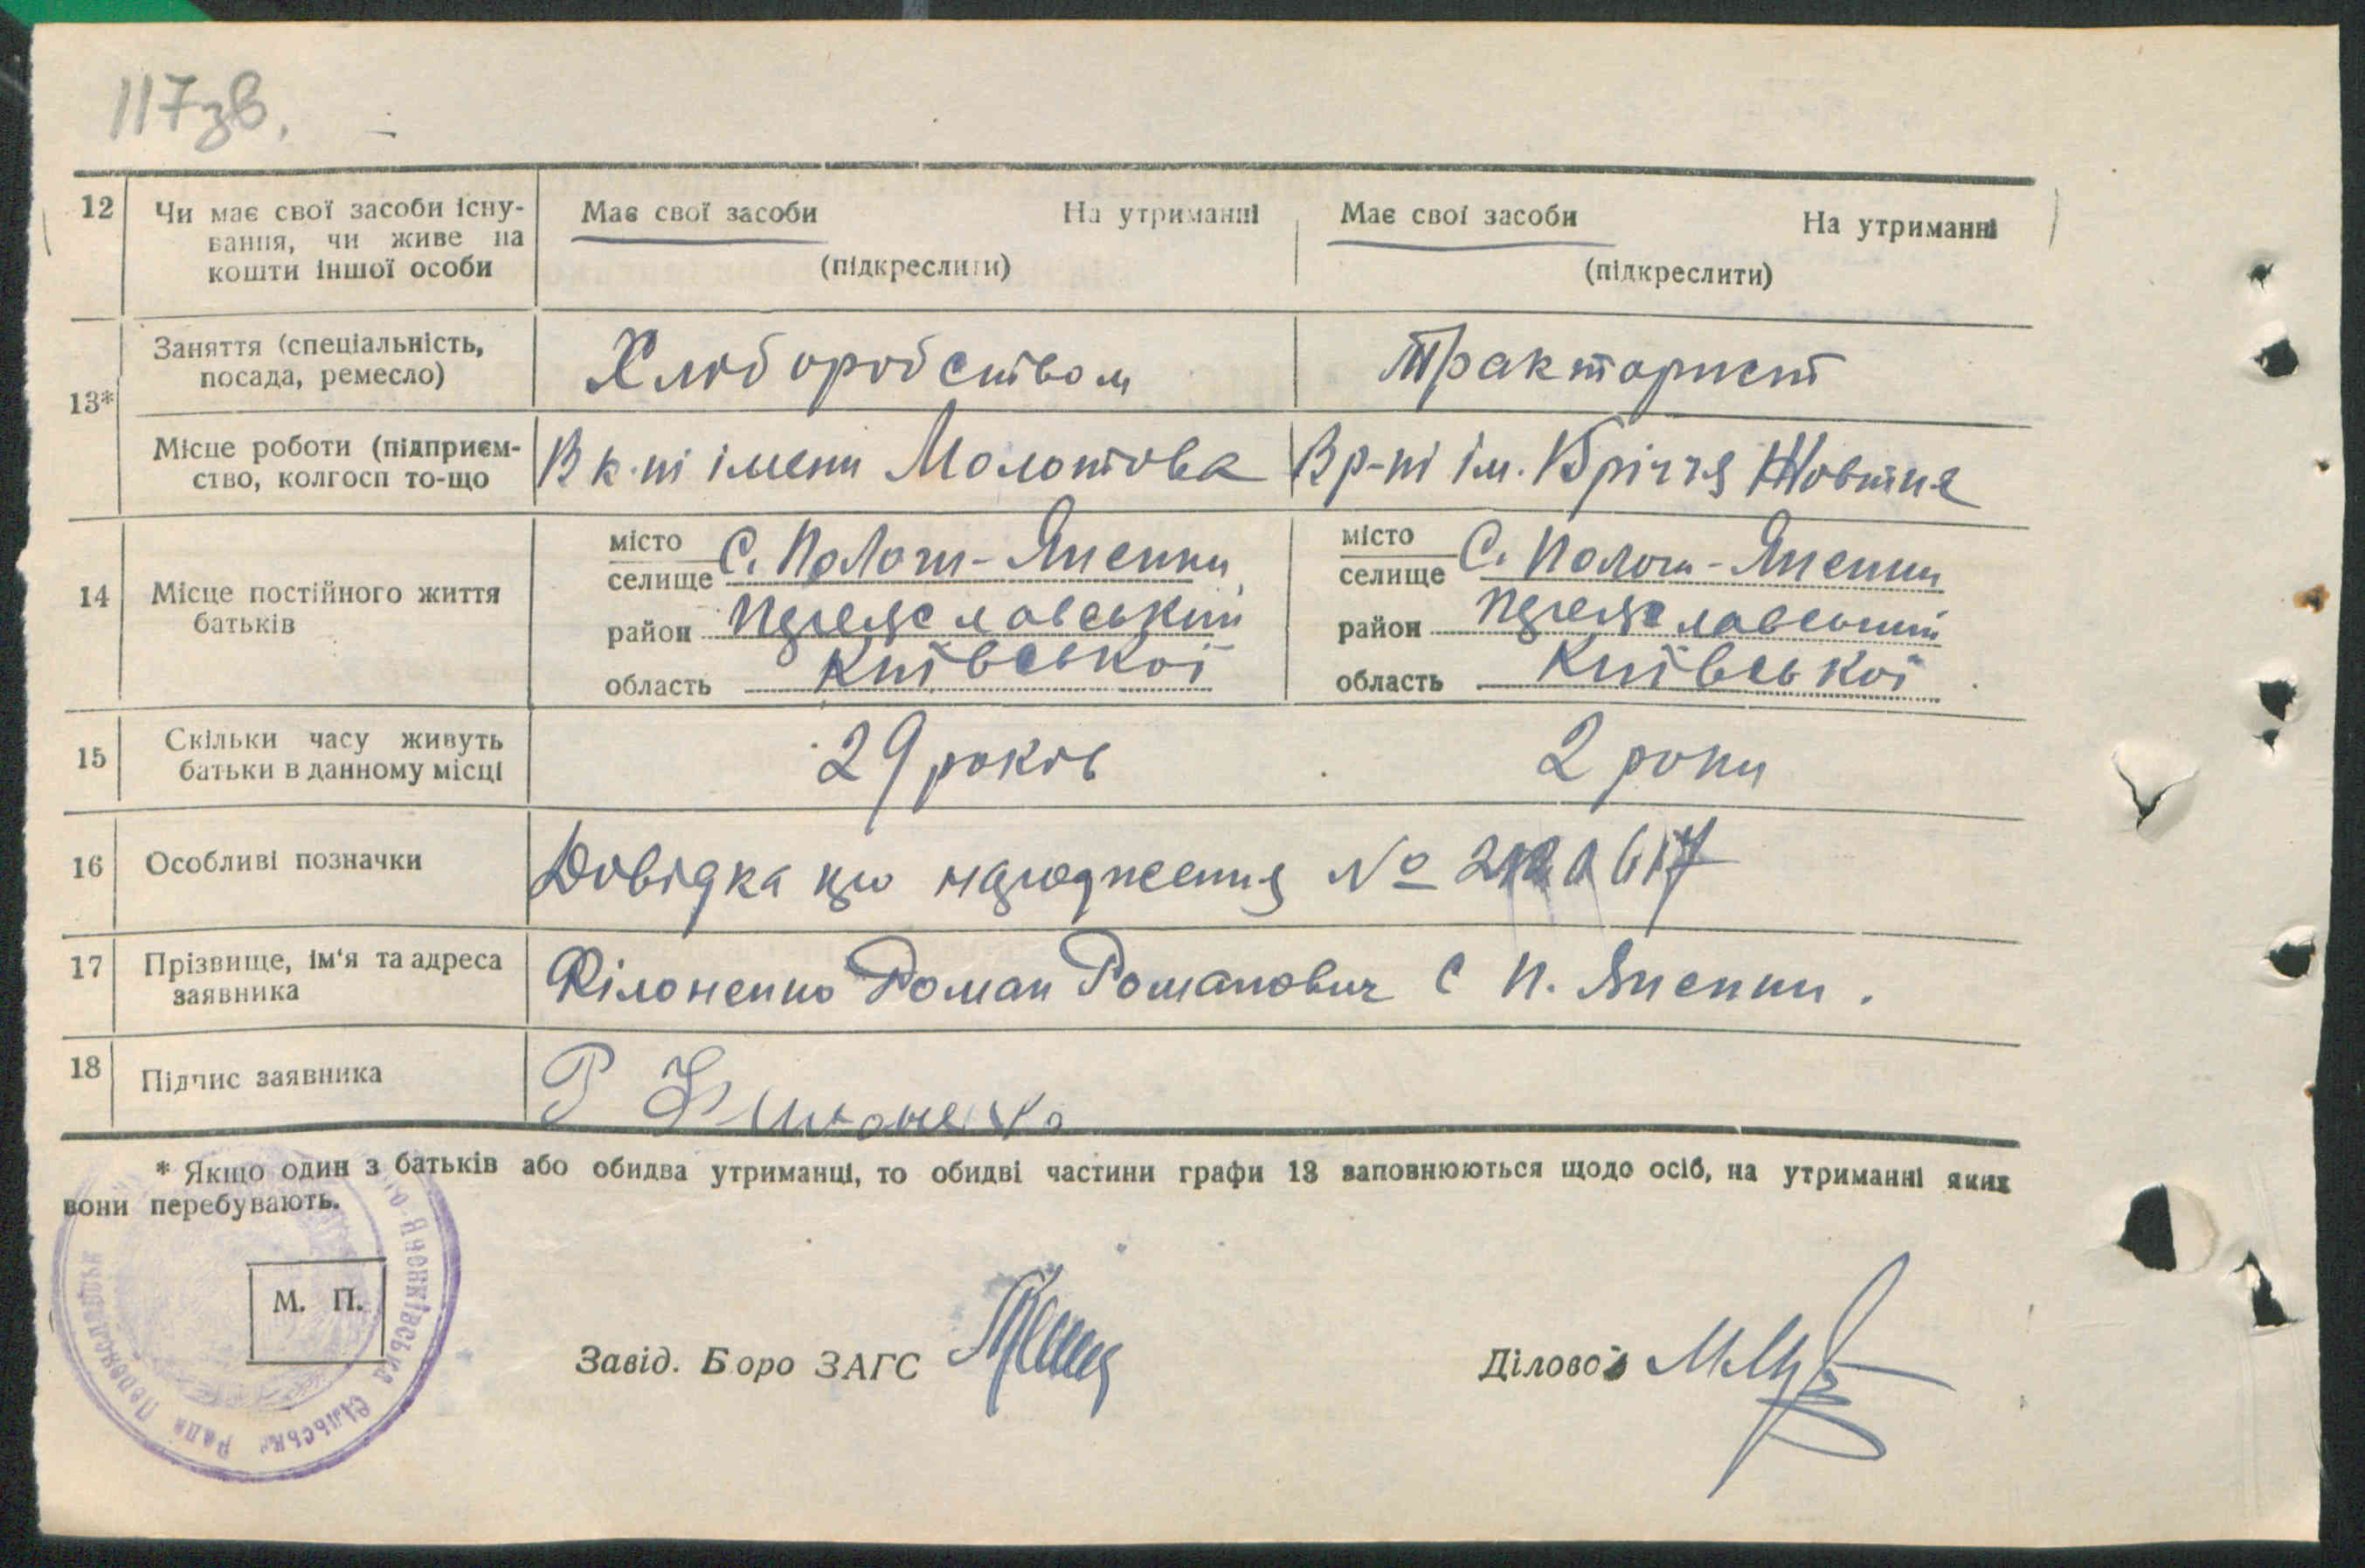 117зв.
12 Чи має свої засоби існу-
вання, чи живе на
кошти іншої особи
Має свої засоби На утриманні
(підкреслити)
Має свої засоби На утриманні
(підкреслити)
13*
Заняття (спеціальність,
посада, ремесло)
Хлюборобством
Тракторист
Місце роботи (підприєм-
ство, колгосп то-що
В к-пі імени Молотова
В р-пі ім. 15річчя Жовтня
14 Місце постійного життя
батьків
місто
селище С. Пологи-Яненки
район Переяславський
область Київської
місто
селище С. Пологи-Яненки
район Переяславський
область Київської
15 Скільки часу живуть
батьки в данному місці
29 років
2 роки
16 Особливі позначки
Довідка про народження №
17 Прізвище, ім'я та адреса
заявника
Філоненко Роман Романович с П. Яненки.
18 Підпис заявника
Р Филоненко
* Якщо один з батьків або обидва утриманці, то обидві частини графи 13 заповнюються щодо осіб, на утриманні яких
вони перебувають.
М. П.
Завід. Боро ЗАГС
Діловод
Яненківська Сільська Рада